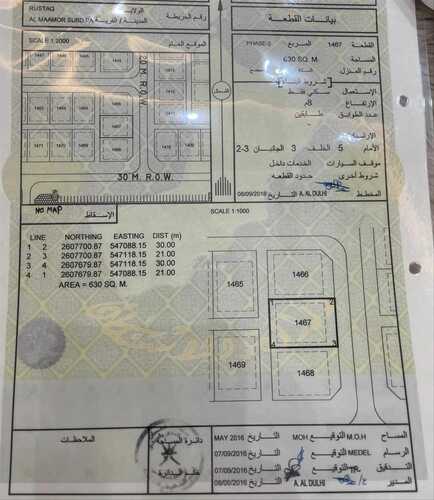 RUSTAQ الولاية
AL MAAMOR SURD PA المدينة / القرية
رقم الخريطة
SCALE 1:2000 الموقع العام
بيانات القطعة
القطعة 1467 المربع PHASE-5
المساحة 630 SQ. M.
رقم المنزل
شروط البناء
الإستعمال سكني فقط
الإرتفاع 8م
عدد الطوابق طابقين
الإرتداد
الأمام 5 الخلف 3 الجانبان 2-3
موقف السيارات الخدمات داخل
شروط أخرى حدود القطعة
المخطط A. AL DULHI التاريخ 08/09/2016
20 M. R.O.W.
30 M. R.O.W.
الشمال
1467
1466
1468
NO MAP
الإسقاط
SCALE 1:1000
LINE NORTHING EASTING DIST (m)
1 2 2607700.87 547088.15 30.00
2 3 2607700.87 547118.15 21.00
3 4 2607679.87 547118.15 30.00
4 1 2607679.87 547088.15 21.00
AREA = 630 SQ. M.
1466
1465
1 2
1467
4 3
1469
1468
الملاحظات
دائرة المساحة
ختم الدائرة
المساح M.O.H التوقيع MOH التاريخ MAY 2016
الرسام MEDEL التوقيع التاريخ 07/09/2016
التدقيق التوقيع التاريخ 07/09/2016
المدير A. AL DULHI التاريخ 08/09/2016